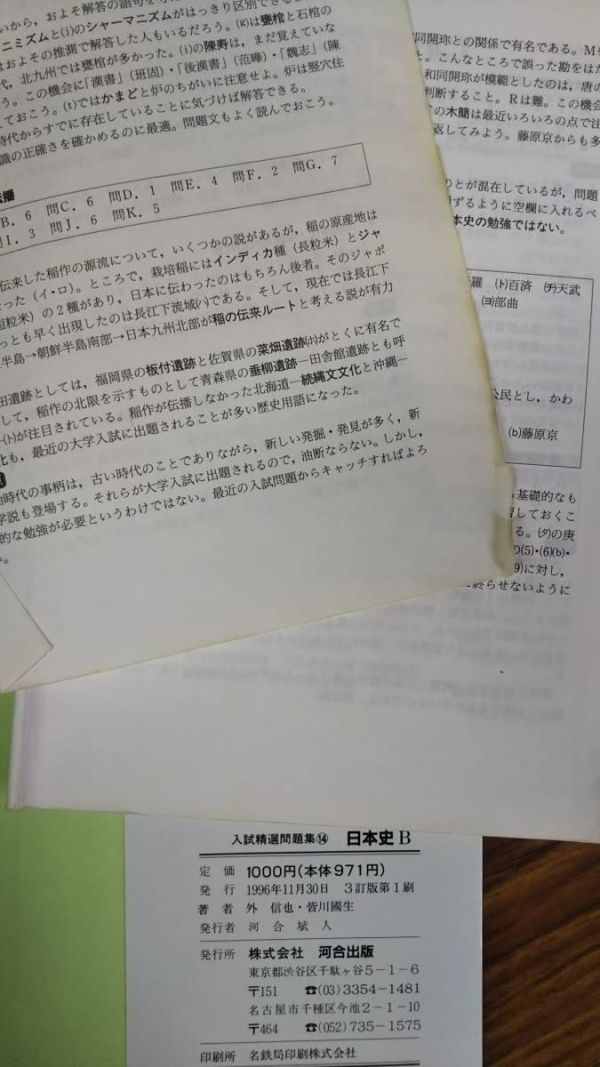 いから、およそ解答の語句を
ニミズムと(j)のシャーマニズムがはっきり区別できる
はおよその推測で解答した人もいるだろう。(g)は甕棺と石棺の
代、北九州では甕棺が多かった。(i)の陳寿は、まだ覚えていな
う。この機会に「漢書」(班固)・「後漢書」(范曄)・「魏志」(陳
ておこう。(t)ではかまどと炉のちがいに注意せよ。炉は竪穴住
時代からすでに存在していることに気づけば解答できる。
識の正確さを確かめるのに最適。問題文もよく読んでおこう。
伝播
B. 6 問C. 6 問D. 1 問E. 4 問F. 2 問G. 7
問I. 3 問J. 6 問K. 5
伝来した稲作の源流について，いくつかの説があるが，稲の原産地は
なった(イ・ロ)。ところで，栽培稲にはインディカ種(長粒米)とジャ
短粒米)の2種があり，日本に伝わったのはもちろん後者。そのジャポ
っとも早く出現したのは長江下流域(ハ)である。そして，現在では長江下
半島→朝鮮半島南部→日本九州北部が稲の伝来ルートと考える説が有力
田遺跡としては，福岡県の板付遺跡と佐賀県の菜畑遺跡(ホ)がとくに有名で
して，稲作の北限を示すものとして青森県の垂柳遺跡―田舎館遺跡とも呼
(ト)が注目されている。稲作が伝播しなかった北海道―続縄文文化と沖縄―
化も，最近の大学入試に出題されることが多い歴史用語になった。
時代の事柄は，古い時代のことでありながら，新しい発掘・発見が多く，新
学説も登場する。それらが大学入試に出題されるので，油断ならない。しかし，
的な勉強が必要というわけではない。最近の入試問題からキャッチすればよろ
同開珎との関係で有名である。M
と。こんなところで誤った勘をはた
和同開珎が模範としたのは，唐の
判断すること。Rは難。この機会
の木簡は最近いろいろの点で注
返してみよう。藤原京からも多
のとが混在しているが，問題
ずるように空欄に入れるべ
本史の勉強ではない。
羅 (ト)百済 (チ)天武
(ヨ)部曲
公民とし，かわ
(b)藤原京
基礎的なも
習しておくこ
る。(タ)の庚
の(5)・(6)(b)・
9)に対し，
終らせないように
入試精選問題集⑭ 日本史B
定価 1000円(本体971円)
発行 1996年11月30日 3訂版第1刷
著者 外 信也・皆川國生
発行者 河合 弌人
発行所 株式会社 河合出版
東京都渋谷区千駄ヶ谷5－1－6
〒151 ☎(03)3354－1481
名古屋市千種区今池2－1－10
〒464 ☎(052)735－1575
印刷所 名鉄局印刷株式会社